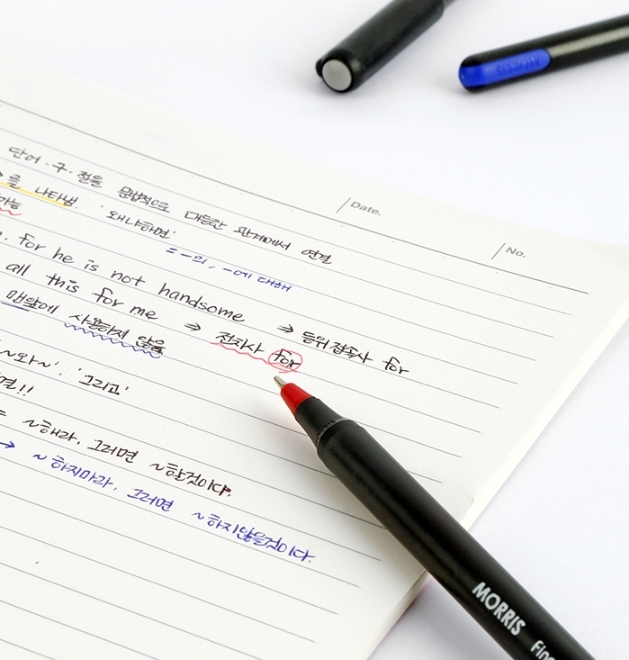 Date.
No.
단어·구·절을 문법적으로 대등한 관계에서 연결
를 나타냄 '왜냐하면'
가능
= ~의, ~에 대해
for he is not handsome ⇒ 등위접속사 for
all this for me ⇒ 전치사 for
맨앞에 사용하지 않음
~와~', '그리고'
면!!
= ~해라, 그러면 ~할것이다.
→ ~하지마라, 그러면 ~하지않을것이다.
MORRIS
Fine